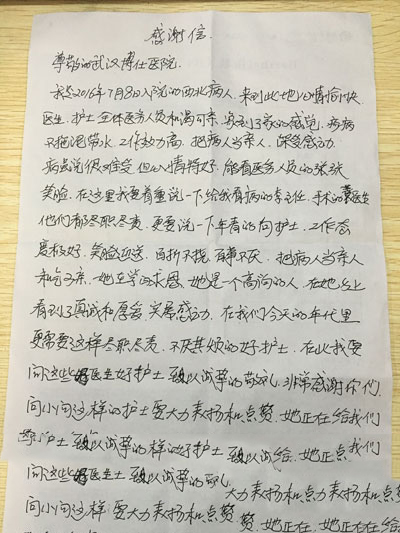 感谢信
尊敬的武汉博仕医院
我是2016年7月8日入院的西北病人，来到此地心情愉快
医生，护士全体医务人员和蔼可亲，家到了家的感觉，看病
不拖泥带水，工作效力高，把病人当亲人，深受感动，
病虽说很难受，但心情特好，能看医务人员的张张
笑脸，在这里我要着重说一下给我看病的李主任，手术的医生
他们都尽职尽责，更要说一下年青的向护士，工作态
度极好，笑脸迎送，百折不挠，百事不厌，把病人当亲人
和蔼可亲，她是一个高尚的人，在她身上
看到了真诚和厚爱，实属感动，在我们今天的年代里
更需要这样尽职尽责，不厌其烦的好护士，在此我要
向这些好医生好护士致以诚挚的敬礼，非常感谢你们，
向小向这样的护士要大力表扬和点赞，她正在给我们
护士致以诚挚的样的好护士致以诚给，她正点我们
向这些好医生士致以诚挚的敬礼
大力表扬和点力表扬和点赞
向小向这样，要大力表扬和点赞赞，她正在，她正在